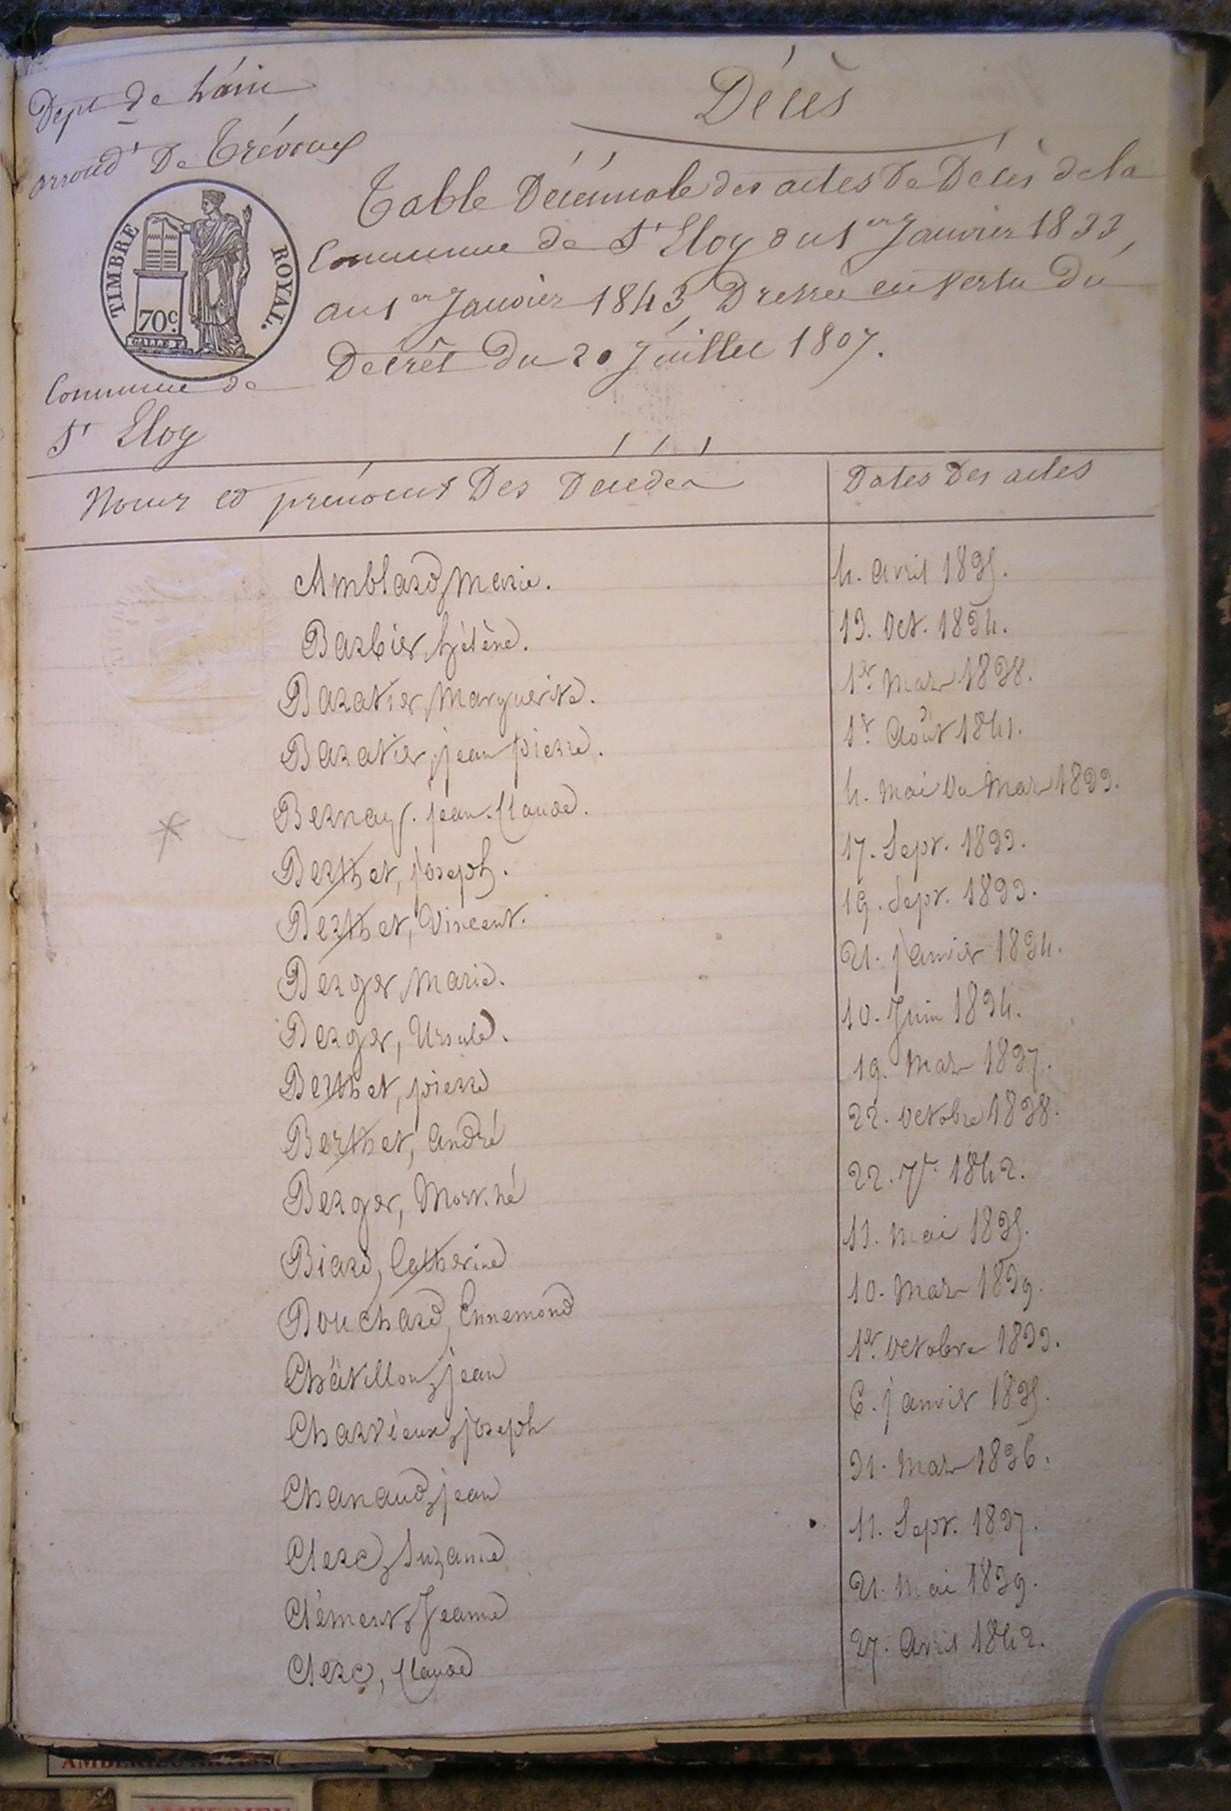 Dépt de l'ain
arrond^t De Trévoux
TIMBRE ROYAL.
70c.
Commune de
S^t Eloy
Décès
Table Décennale des actes De Décès de la
Commune de S^t Eloy du 1^er Janvier 1833,
au 1^er Janvier 1843, Dressée en vertu du
Decrêt Du 20 Juillet 1807.
Noms et prénoms Des Décédés
Dates Des actes
Amblard, Marie. 4. avril 1835.
Barbier, hélène. 13. Oct. 1834.
Baratier, Marguerite. 1^er Mars 1838.
Baratier, jean pierre. 1^r Août 1841.
Bernay. jean-Claude. 4. Mai Ou Mars 1833.
Berthet, joseph. 17. Sept. 1833.
Berthet, Vincent. 19. Sept. 1833.
Berger, Marie. 21. janvier 1834.
Berger, Ursule. 10. Juin 1834.
Berthet, pierre 19. Mars 1837.
Berthet, André 22. Octobre 1838.
Berger, Mort-né 22. 7^re 1842.
Biard, Catherine 11. Mai 1835.
Bouchard, Ennemond 10. Mars 1839.
Châtillon, jean 1^er Octobre 1833.
Charvieux, joseph 6. janvier 1835.
Chanaud, jean 31. Mars 1836.
Clerc, Suzanne 11. Sept. 1837.
Clément, Jeanne 21. Mai 1839.
Clerc, Claude 27. Avril 1842.